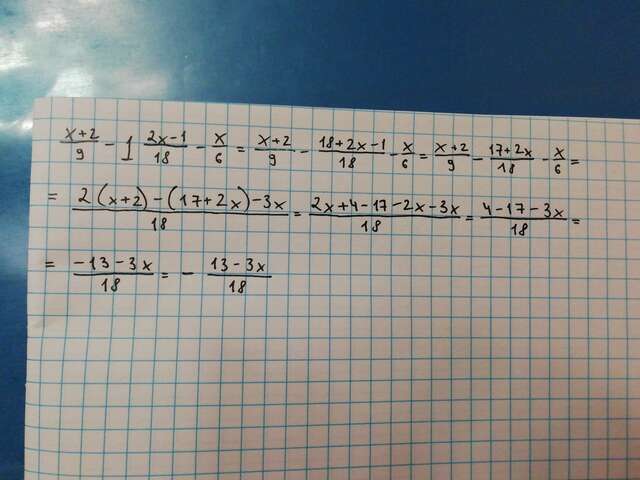 (x+2)/9 - 1 (2x-1)/18 - x/6 = (x+2)/9 - (18+2x-1)/18 - x/6 = (x+2)/9 - (17+2x)/18 - x/6 =
= (2(x+2)-(17+2x)-3x)/18 = (2x+4-17-2x-3x)/18 = (4-17-3x)/18 =
= (-13-3x)/18 = - (13-3x)/18